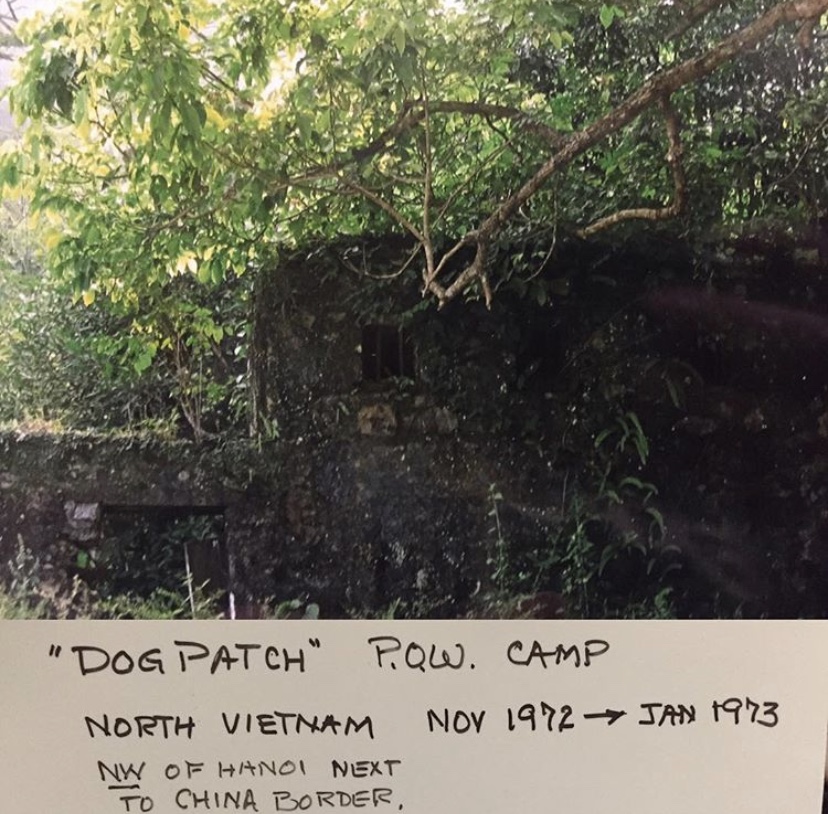 "DOGPATCH" P.O.W. CAMP
NORTH VIETNAM NOV 1972 → JAN 1973
NW OF HANOI NEXT
TO CHINA BORDER.